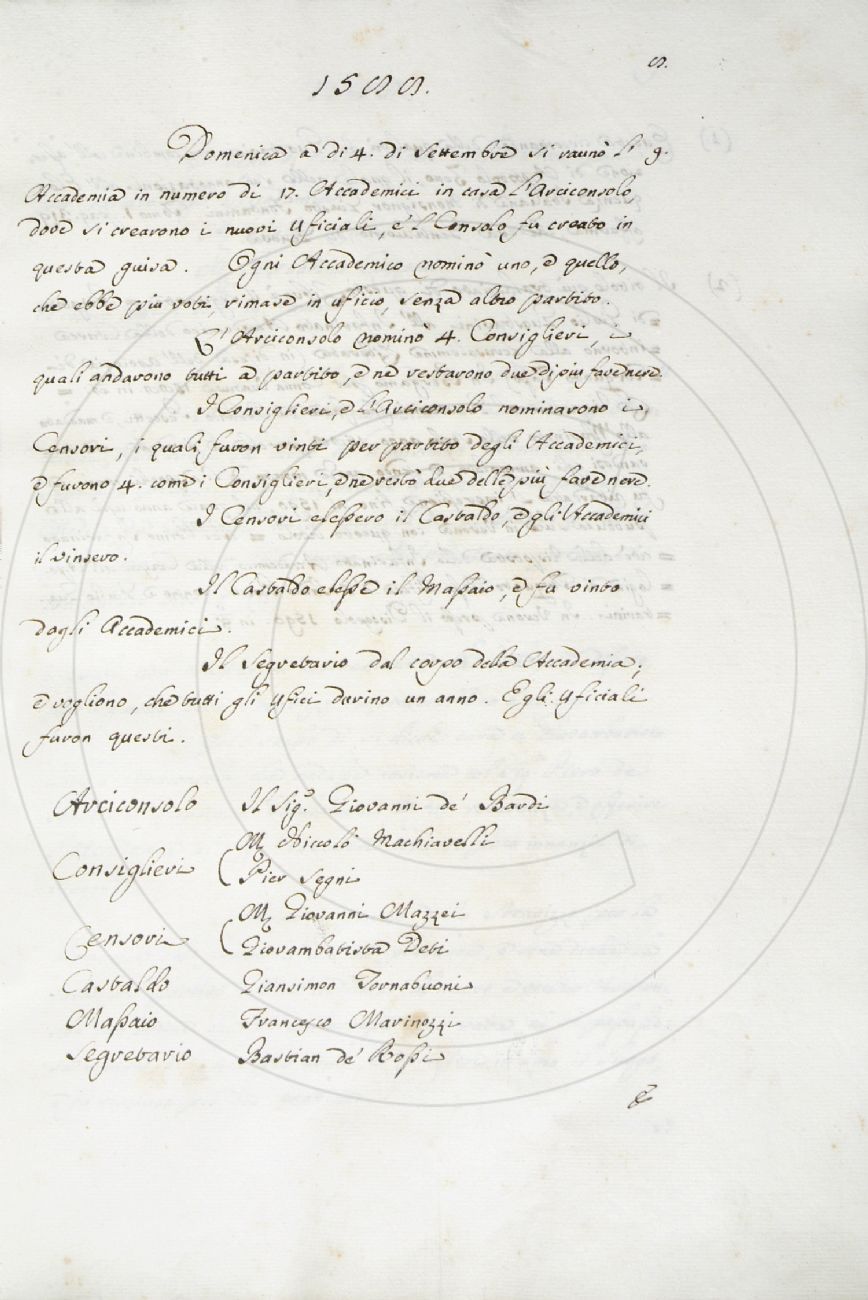 8.
1588.
Domenica a' dì 4. di Settembre si raunò l' 9.
Accademia in numero di 17. Accademici in casa l'Arciconsolo,
dove si crearono i nuovi Uficiali, e 'l Consolo fu creato in
questa guisa. Ogni Accademico nominò uno, e quello,
che ebbe più voti, rimase in uficio, senza altro partito.
L'Arciconsolo nominò 4. Consiglieri, i
quali andarono tutti a partito, e ne restarono due di più fave nere.
I Consiglieri, e l'Arciconsolo nominarono i
Censori, i quali furon vinti per partito degli Accademici,
e furono 4. come i Consiglieri, e ne restò due delle più fave nere.
I Censori elessero il Castaldo, e gli Accademici
il vinsero.
Il Castaldo elesse il Massaio, e fu vinto
dagli Accademici.
Il Segretario dal corpo della Accademia;
e vogliono, che tutti gli Ufici durino un anno. E gli Uficiali
furon questi.
Arciconsolo Il Sig.r Giovanni de' Bardi
M. Niccolò Machiavelli
Consiglieri
Pier Segni
M. Giovanni Mazzei
Censori
Giovambatista Deti
Castaldo Giansimon Tornabuoni
Massaio Francesco Marinozzi
Segretario Bastian de' Rossi
E